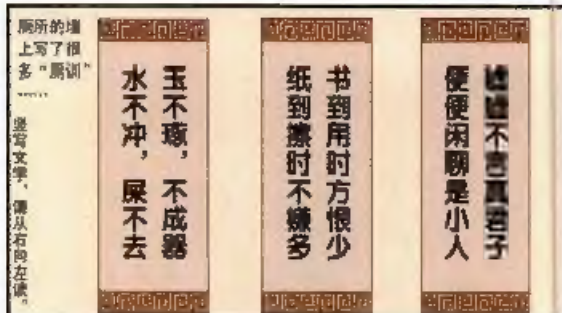 厕所的墙
上写了很
多“厕训”
……
竖写文字，请从右向左读。
嘘嘘不言真君子
便便闲聊是小人
书到用时方恨少
纸到擦时不嫌多
玉不琢，不成器
水不冲，屎不去